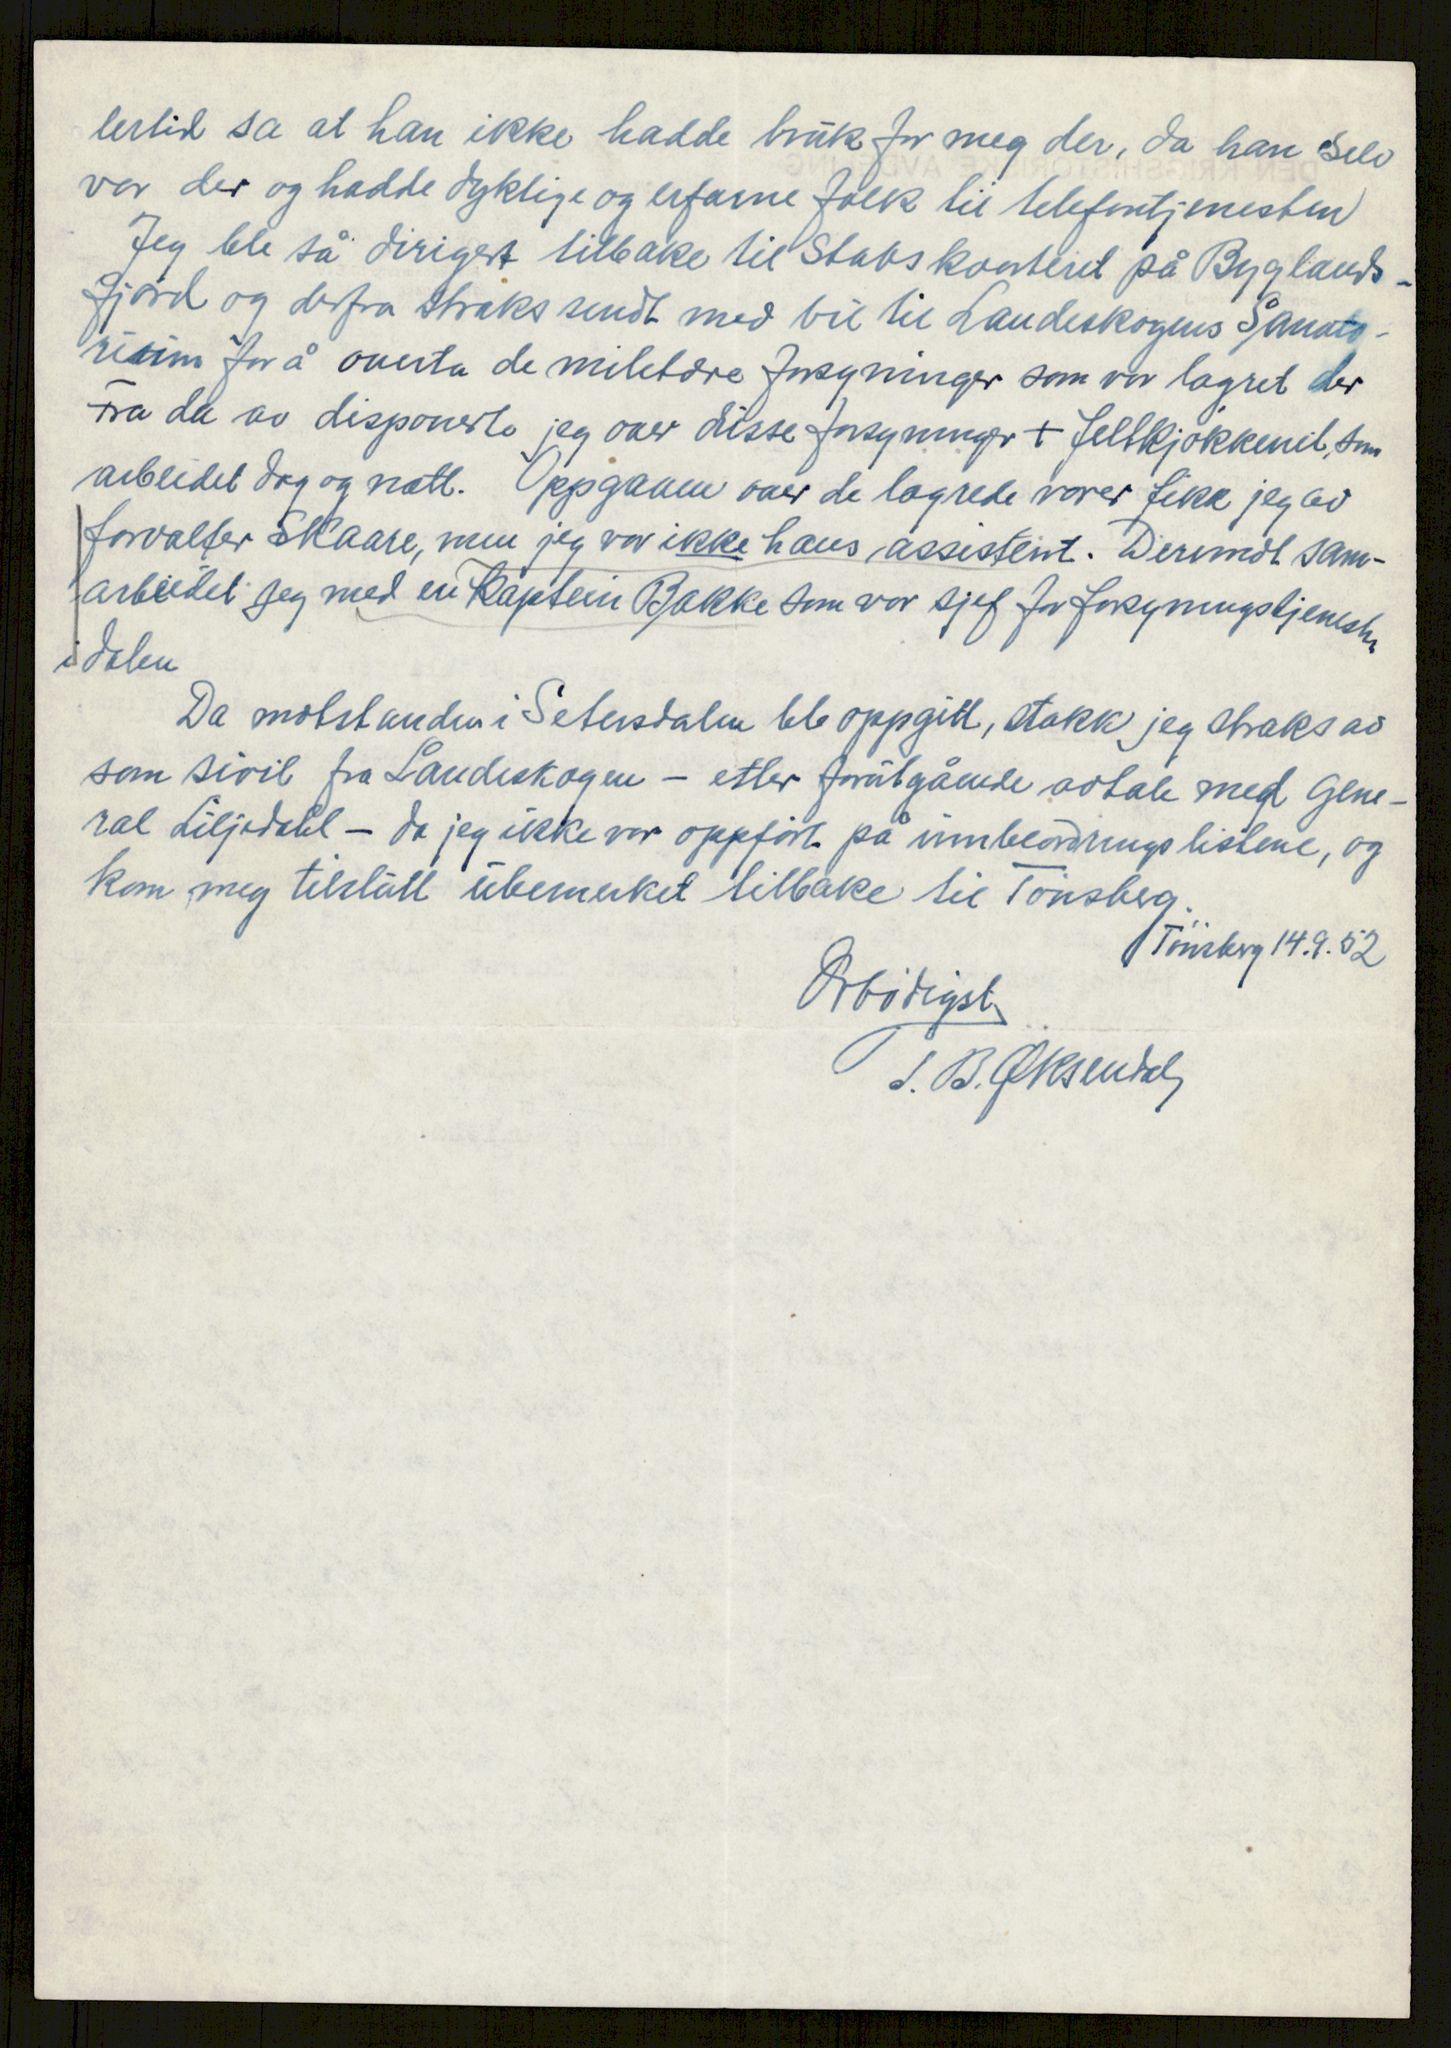 lertid sa at han ikke hadde bruk for meg der, da han selv
var der og hadde dyktige og erfarne folk til telefontjenesten
Jeg ble så dirigert tilbake til Stabskvarteret på Byglands-
fjord og derfra straks sendt med bil til Landeskogens Sanato-
rium for å overta de militære forsyninger som var lagret der
Fra da av disponerte jeg over disse forsyninger + feltkjökkenet, som
arbeidet dag og natt. Oppgaven over de lagrede varer fikk jeg av
forvalter Skaare, men jeg var ikke hans assistent. Derimot sam-
arbeidet jeg med en Kaptein Bakke som var sjef for forsyningstjenesten
i dalen
Da motstanden i Setersdalen ble oppgitt, stakk jeg straks av
som sivil fra Landeskogen – etter forutgående avtale med Gene-
ral Liljedahl – da jeg ikke var oppfört på innbeordringslistene, og
kom meg tilslutt ubemerket tilbake til Tönsberg.
Tönsberg 14.9.52
Ærbödigst
S. B. Øksendal